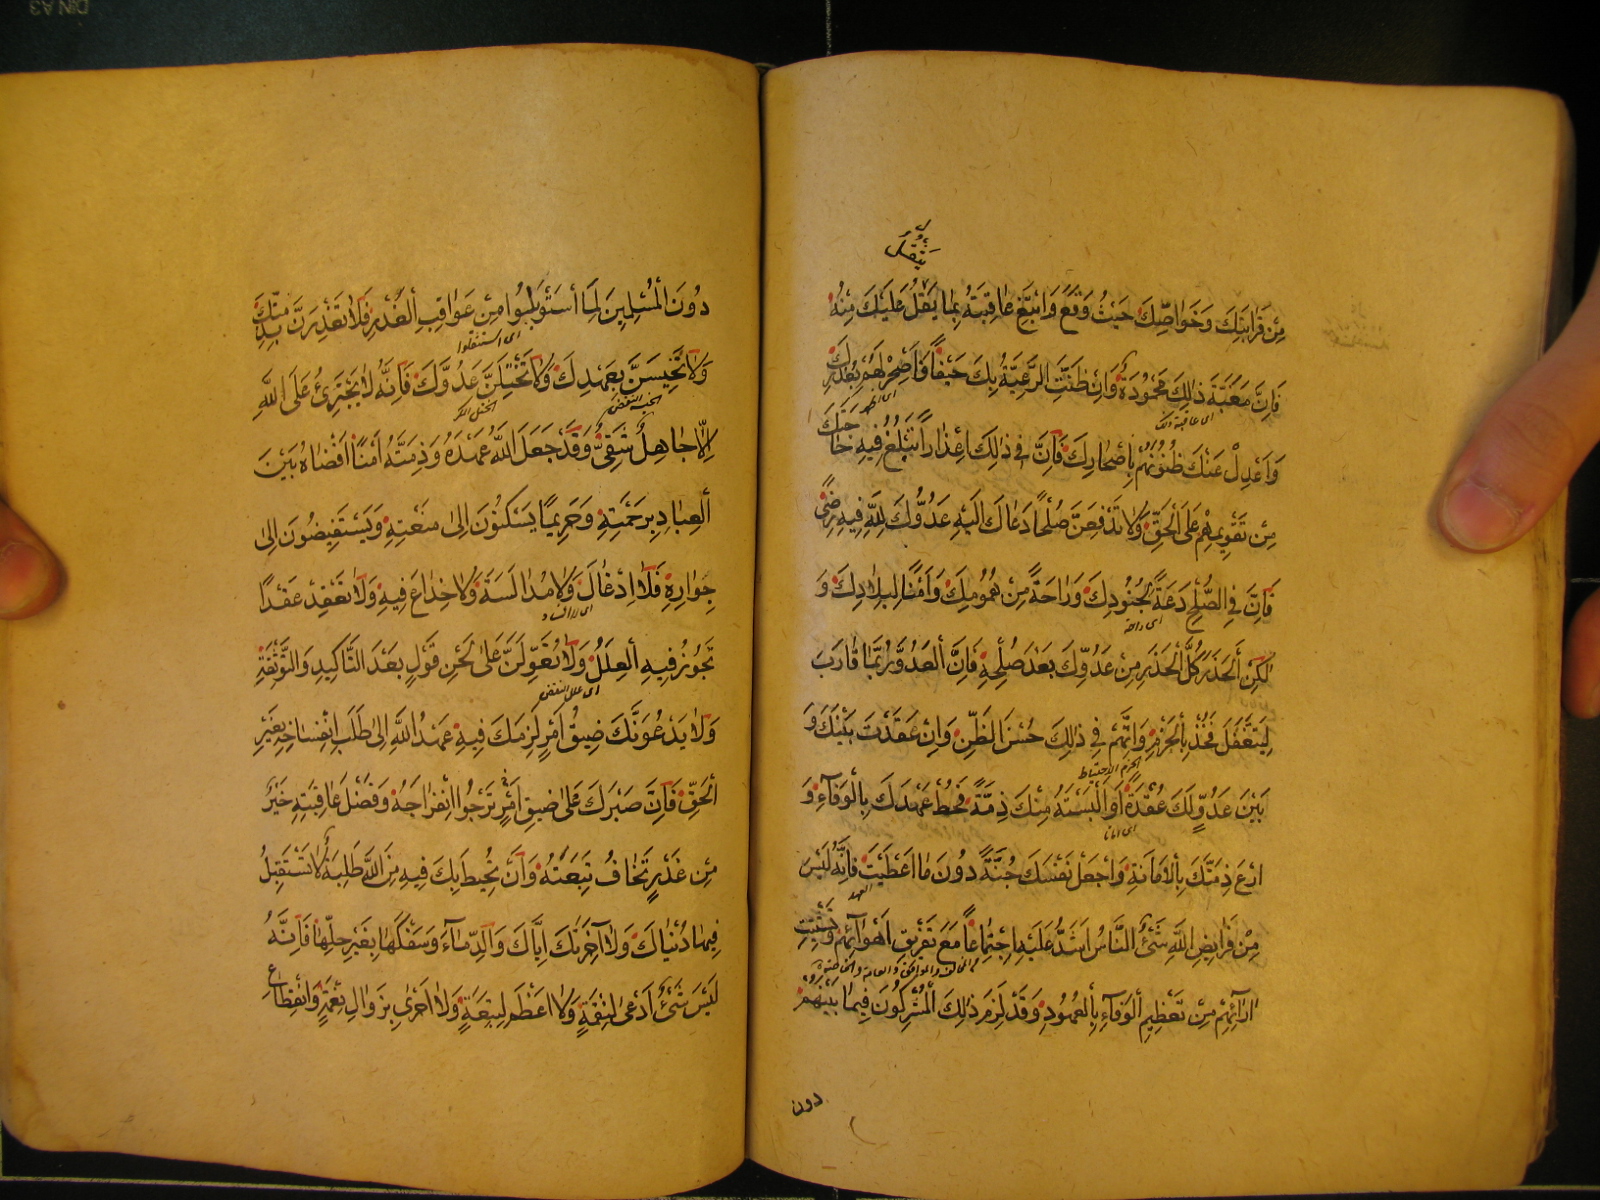 يَثْقُلُ
مِنْ قَرَابَتِكَ وَخَوَاصِّكَ حَيْثُ وَقَعَ وَابْتَغِ عَاقِبَتَهُ بِمَا يَثْقُلُ عَلَيْكَ مِنْهُ
فَاِنَّ مَغَبَّةَ ذٰلِكَ مَحْمُودَةٌ وَاِنْ ظَنَّتِ الرَّعِيَّةُ بِكَ حَيْفًا فَاَصْحِرْ لَهُمْ بِعُذْرِكَ
اى عاقبة ذلك
اى اظهر
وَاَعْدِلْ عَنْكَ ظُنُونَهُمْ بِاِصْحَارِكَ فَاِنَّ فِى ذٰلِكَ اِعْذَارًا تَبْلُغُ فِيهِ حَاجَتَكَ
مِنْ تَقْوِيمِهِمْ عَلَى الْحَقِّ وَلَا تَدْفَعَنَّ صُلْحًا دَعَاكَ اِلَيْهِ عَدُوُّكَ لِلّٰهِ فِيهِ رِضًى
فَاِنَّ فِى الصُّلْحِ دَعَةً لِجُنُودِكَ وَرَاحَةً مِنْ هُمُومِكَ وَاَمْنًا لِبِلَادِكَ وَ
اى راحة
لٰكِنِ الْحَذَرَ كُلَّ الْحَذَرِ مِنْ عَدُوِّكَ بَعْدَ صُلْحِهِ فَاِنَّ الْعَدُوَّ رُبَّمَا قَارَبَ
لِيَتَغَفَّلَ فَخُذْ بِالْحَزْمِ وَاتَّهِمْ فِى ذٰلِكَ حُسْنَ الظَّنِّ وَاِنْ عَقَدْتَ بَيْنَكَ وَ
الحزم الاحتياط
بَيْنَ عَدُوٍّ لَكَ عُقْدَةً اَوْ اَلْبَسْتَهُ مِنْكَ ذِمَّةً فَحُطْ عَهْدَكَ بِالْوَفَآءِ وَ
اى امانا
ارْعَ ذِمَّتَكَ بِالْاَمَانَةِ وَاجْعَلْ نَفْسَكَ جُنَّةً دُونَ مَا اَعْطَيْتَ فَاِنَّهُ لَيْسَ
العهد
مِنْ فَرَايِضِ اللّٰهِ شَىْءٌ النَّاسُ اَشَدُّ عَلَيْهِ اِجْتِمَاعًا مَعَ تَفْرِيقِ اَهْوَآئِهِمْ وَتَشْتِيتِ
اٰرَآئِهِمْ مِنْ تَعْظِيمِ الْوَفَآءِ بِالْعُهُودِ وَقَدْ لَزِمَ ذٰلِكَ الْمُشْرِكُونَ فِيمَا بَيْنَهُمْ
دون
دُونَ الْمُسْلِمِينَ لِمَا اسْتَوْبَلُوا مِنْ عَوَاقِبِ الْغَدْرِ فَلَا تَغْدِرَنَّ بِذِمَّتِكَ
اى استثقلوا
وَلَا تَخِيسَنَّ بِعَهْدِكَ وَلَا تَخْتِلَنَّ عَدُوَّكَ فَاِنَّهُ لَا يَجْتَرِئُ عَلَى اللّٰهِ
الختل المكر
اِلَّا جَاهِلٌ شَقِىٌّ وَقَدْ جَعَلَ اللّٰهُ عَهْدَهُ وَذِمَّتَهُ اَمْنًا اَفْضَاهُ بَيْنَ
الْعِبَادِ بِرَحْمَتِهِ وَحَرِيمًا يَسْكُنُونَ اِلٰى مَنَعَتِهِ وَيَسْتَفِيضُونَ اِلٰى
جِوَارِهِ فَلَا اِدْغَالَ وَلَا مُدَالَسَةَ وَلَا خِدَاعَ فِيهِ وَلَا تَعْقِدْ عَقْدًا
اى لا افساد
تَجُوزُ فِيهِ الْعِلَلُ وَلَا تُعَوِّلَنَّ عَلٰى لَحْنِ قَوْلٍ بَعْدَ التَّاكِيدِ وَالتَّوْثِقَةِ
اى علل النقض
وَلَا يَدْعُوَنَّكَ ضِيقُ اَمْرٍ لَزِمَكَ فِيهِ عَهْدُ اللّٰهِ اِلٰى طَلَبِ انْفِسَاخِهِ بِغَيْرِ
الْحَقِّ فَاِنَّ صَبْرَكَ عَلٰى ضِيقِ اَمْرٍ تَرْجُوا انْفِرَاجَهُ وَفَضْلَ عَاقِبَتِهِ خَيْرٌ
مِنْ غَدْرٍ تَخَافُ تَبِعَتَهُ وَاَنْ تُحِيطَ بِكَ فِيهِ مِنَ اللّٰهِ طَلِبَةٌ لَا تَسْتَقْبِلُ
فِيهَا دُنْيَاكَ وَلَا اٰخِرَتَكَ اِيَّاكَ وَالدِّمَآءَ وَسَفْكَهَا بِغَيْرِ حِلِّهَا فَاِنَّهُ
لَيْسَ شَىْءٌ اَدْعٰى لِنِقْمَةٍ وَلَا اَعْظَمَ لِتَبِعَةٍ وَلَا اَحْرٰى بِزَوَالِ نِعْمَةٍ وَانْقِطَاعِ